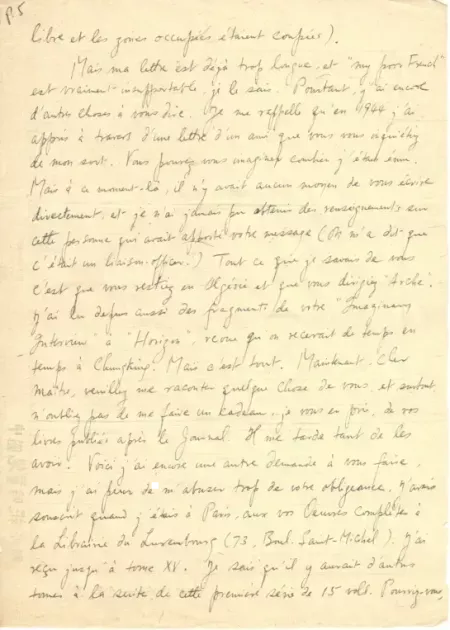 p.5
libre et les zones occupées étaient coupées).
Mais ma lettre est déjà trop longue, et "my poor French"
est vraiment insupportable, je le sais. Pourtant, j'ai encore
d'autres choses à vous dire. Je me rappelle qu'en 1944 j'ai
appris à travers d'une lettre d'un ami que vous vous inquiétiez
de mon sort. Vous pouvez vous imaginer combien j'étais ému.
Mais à ce moment-là, il n'y avait aucun moyen de vous écrire
directement, et je n'ai jamais pu obtenir des renseignements sur
cette personne qui avait apporté votre message (On m'a dit que
c'était un liaison-officer!) Tout ce que je savais de vous
c'est que vous restiez en Algérie et que vous dirigiez "Arche".
J'ai lu depuis aussi des fragments de votre "Imaginary
Interviews" à "Horizon", revue qu'on recevait de temps en
temps à Chungking. Mais c'est tout. Maintenant, Cher
Maître, veuillez me raconter quelque chose de vous, et surtout
n'oubliez pas de me faire un kadeau, je vous en prie, de vos
livres publiés après le Journal. Il me tarde tant de les
avoir. Voici j'ai encore une autre demande à vous faire,
mais j'ai peur de m'abuser trop de votre obligeance. J'avais
souscrit quand j'étais à Paris, aux vos Oeuvres Complètes à
la Librairie du Luxembourg (73, Boul. Saint-Michel). J'ai
reçu jusqu'à tome XV. Je sais qu'il y aurait d'autres
tomes à la suite de cette première série de 15 vols. Pourriez-vous,